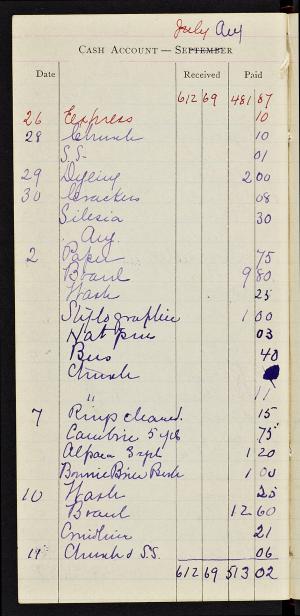 July Aug
CASH ACCOUNT — SEPTEMBER
Date Received Paid
612 69 481 87
26 Express 10
28 Church 10
S.S. 01
29 Dyeing 2 00
30 Crackers 08
Silesia 30
Aug.
2 Paper 75
Board 9 80
Wash 25
Stylographic 1 00
Hat pin 03
Bus 40
Church
" 11
7 Rings cleaned. 15
Cambric 5 yds 75
Alpaca 3 yds 1 20
Bonnie Brier Bush 1 00
10 Wash 25
Board 12 60
Crinoline 21
11 Church & S.S. 06
612 69 513 02